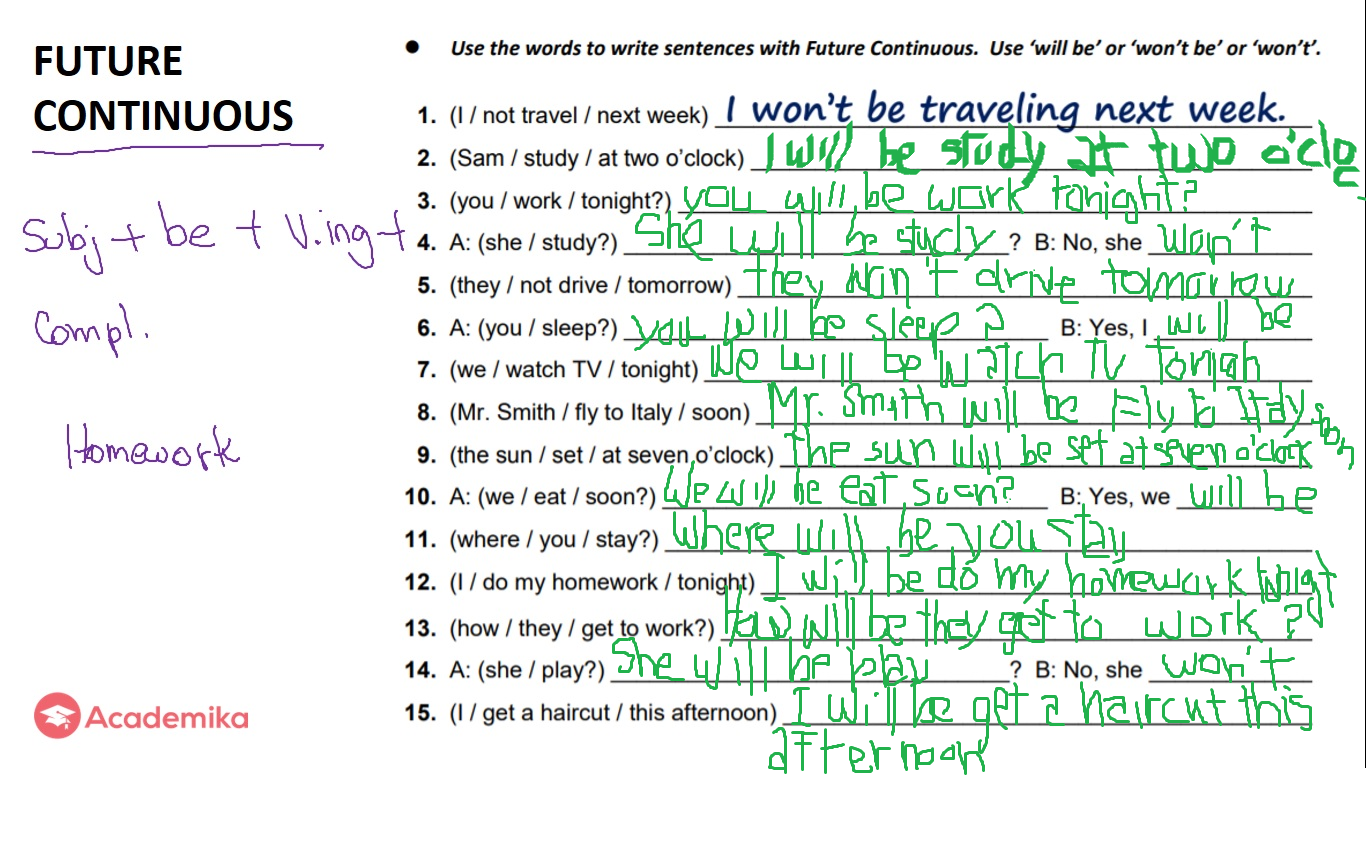 FUTURE
CONTINUOUS
Subj + be + V.ing +
Compl.
Homework
Academika
● Use the words to write sentences with Future Continuous. Use ‘will be’ or ‘won’t be’ or ‘won’t’.
1. (I / not travel / next week) I won’t be traveling next week.
2. (Sam / study / at two o’clock) I will be study at two o'cloc
3. (you / work / tonight?) you will be work tonight?
4. A: (she / study?) She will be study ? B: No, she won't
5. (they / not drive / tomorrow) they won't drive tomorrow
6. A: (you / sleep?) you will be sleep? B: Yes, I will be
7. (we / watch TV / tonight) We will be watch TV tonigh
8. (Mr. Smith / fly to Italy / soon) Mr. Smith will be Fly to Italy soon
9. (the sun / set / at seven o’clock) The sun will be set at seven o'clock
10. A: (we / eat / soon?) We will be eat soon? B: Yes, we will be
11. (where / you / stay?) Where will be you stay
12. (I / do my homework / tonight) I will be do my homework
13. (how / they / get to work?) How will be they get to work?
14. A: (she / play?) She will be play ? B: No, she won't
15. (I / get a haircut / this afternoon) I will be get a haircut this
afternoon